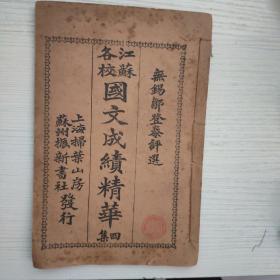 無錫鄒登泰評選
江蘇各校
國文成績精華
四集
上海掃葉山房
蘇州振新書社
發行